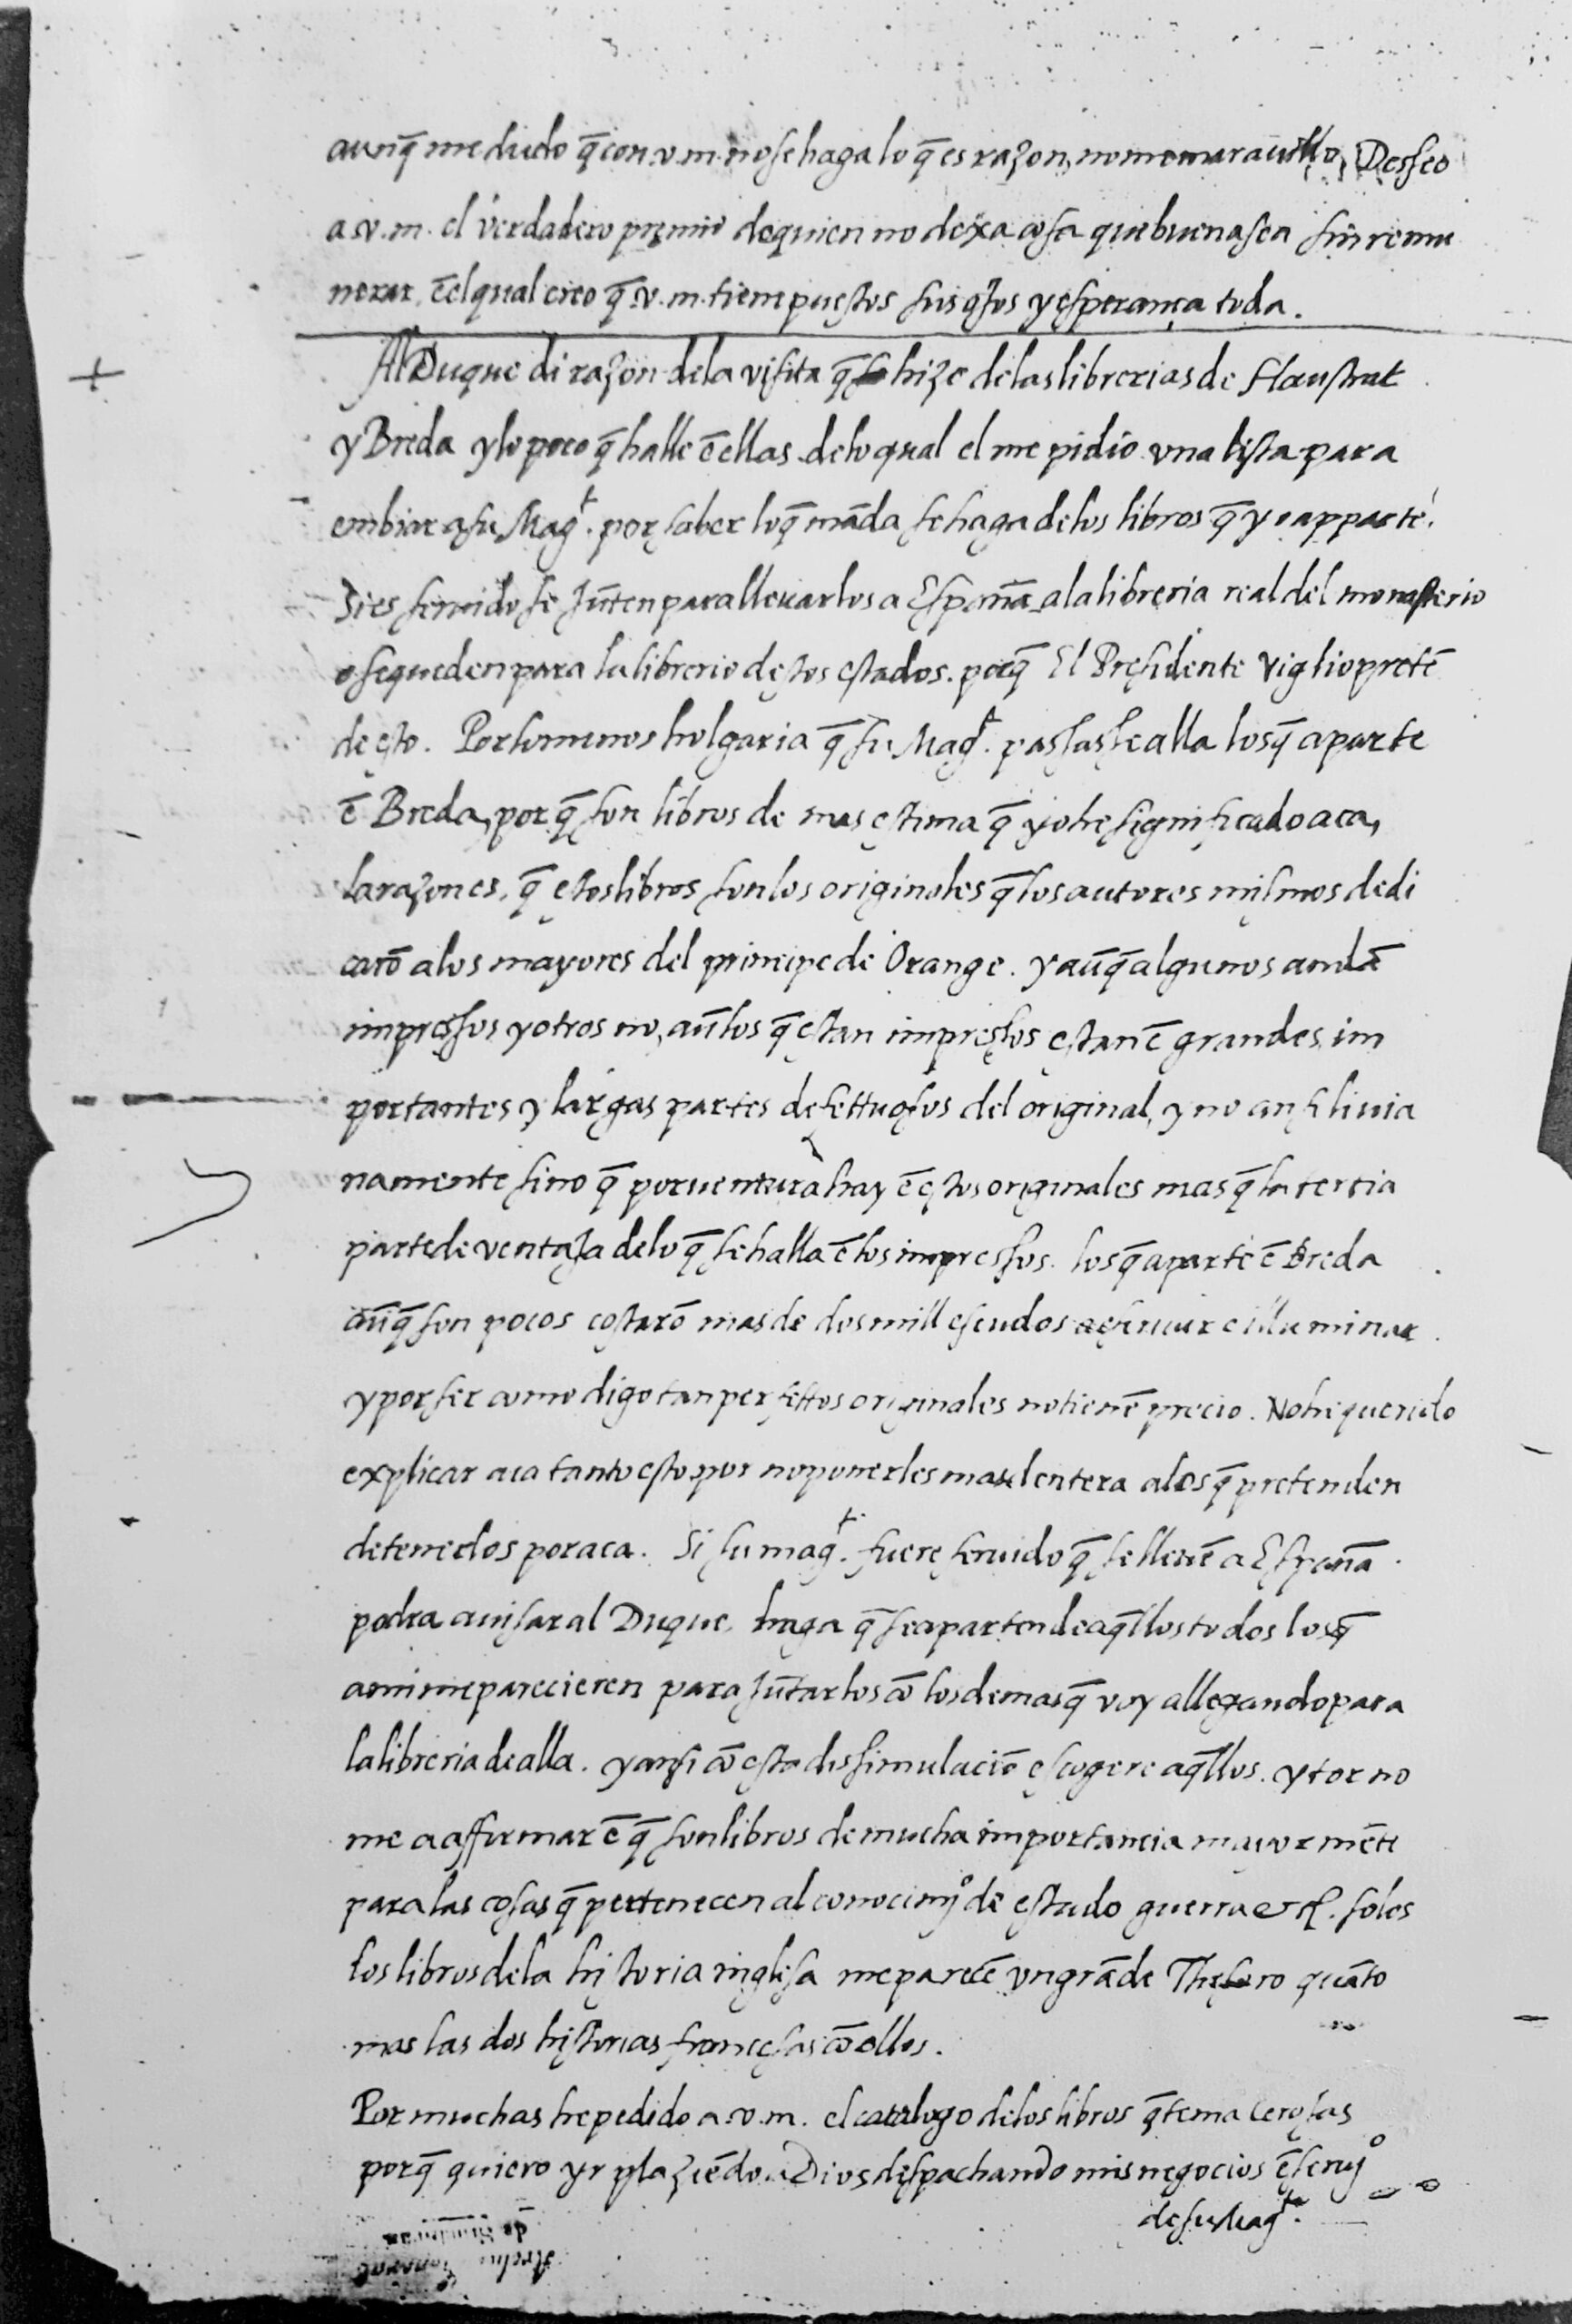 aunq̃ me dudo q̃ con .v.m. no se haga lo q̃ es razon, no me marauillo, Desseo
a .v.m. el verdadero premio de quien no dexa cosa que buena sea sin remu
nerar, ẽ el qual creo q̃ .v.m. tiene puestos sus ojos y esperança toda.
Al Duque di razon de la visita q̃ se hizo de las librerias de Haustrat
y Breda y lo poco q̃ halle ẽ ellas. de lo qual el me pidio una lista para
embiar a su Magᵗ. por saber lo q̃ mãda se haga de los libros q̃ yo apparté.
Si es seruido se Jũten para lleuarlos a España a la libreria real del monasterio
o se queden para la libreria destos estados. porq̃ El Presidente Viglio pretẽ
de esto. Por lo menos holgaria q̃ su Magᵗ. passasse alla los q̃ aparte
ẽ Breda, por q̃ son libros de mas estima q̃ yo he significado aca,
la razon es, q̃ estos libros son los originales q̃ los autores mismos dedi
carõ a los mayores del principe de Orange. y aũq̃ algunos andã
impressos y otros no, aũ los q̃ estan impressos estan ẽ grandes, im
portantes y largas partes defettuosos del original, y no ansi liuia
namente sino q̃ por uentura hay ẽ estos originales mas q̃ la tertia
parte de ventaja de lo q̃ se halla ẽ los impressos. los q̃ aparté ẽ Breda
aũq̃ son pocos costarõ mas de dos mill escudos a escriuir e illuminar.
y por ser como digo tan perfettos originales no tienẽ precio. No he querido
explicar aca tanto esto por no ponerles mas dentera a los q̃ pretenden
detenerlos por aca. Si su magᵗ. fuere seruido q̃ se lleuẽ a España.
podra auisar al Duque, haga q̃ se aparten de aq̃llos todos los q̃
a mi me parecieren para Jũtarlos cõ los demas q̃ voy allegando para
la libreria de alla. y ansi cõ esta dissimulaciõ escogere aq̃llos. y torno
me a affirmar ẽ q̃ son libros de mucha importancia mayormẽte
para las cosas q̃ pertenecen al conocimjº de estado guerra etc. solos
los libros de la historia inglesa me parecẽ un grãde Thesoro quãto
mas las dos historias francesas cõ ellos.
Por muchas he pedido a .v.m. el catalogo de los libros q̃ tema cerca las
porq̃ quiero yr plaziẽdo a Dios despachando mis negocios ẽ serujº
de su Magᵗ.